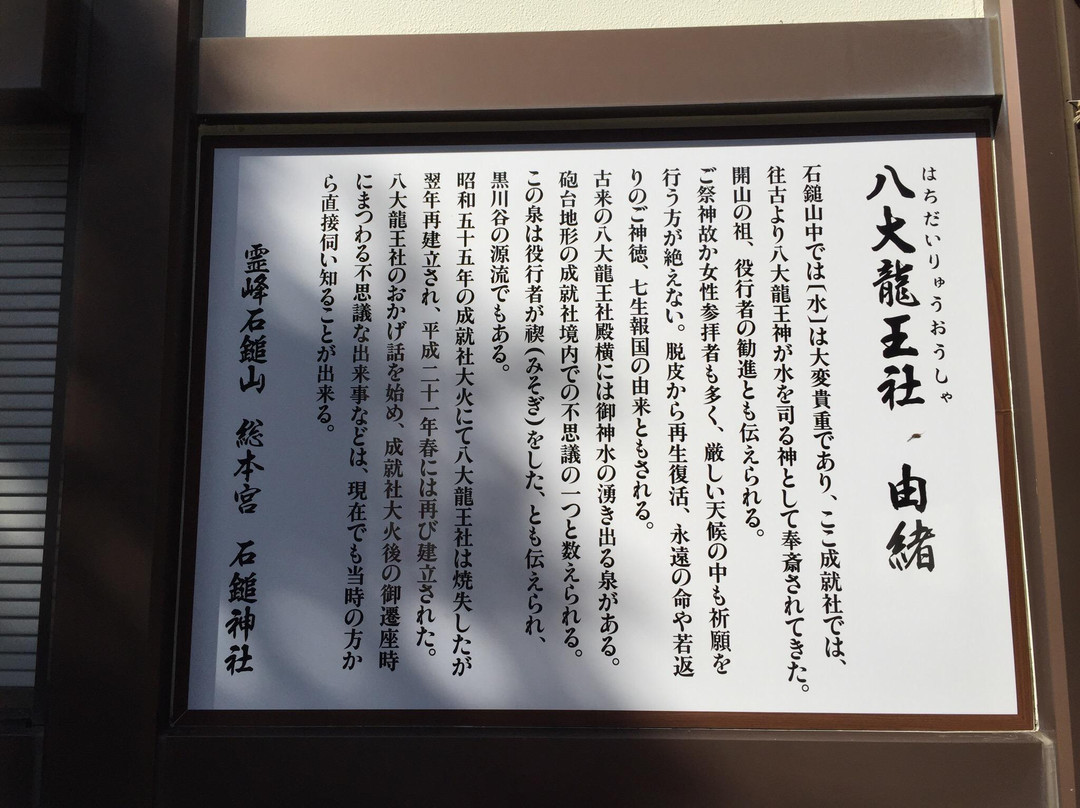 はちだいりゅうおうしゃ
八大龍王社 由緒
石鎚山中では〔水〕は大変貴重であり、ここ成就社では、
往古より八大龍王神が水を司る神として奉斎されてきた。
開山の祖、役行者の勧進とも伝えられる。
ご祭神故か女性参拝者も多く、厳しい天候の中も祈願を
行う方が絶えない。脱皮から再生復活、永遠の命や若返
りのご神徳、七生報国の由来ともされる。
古来の八大龍王社殿横には御神水の湧き出る泉がある。
砲台地形の成就社境内での不思議の一つと数えられる。
この泉は役行者が禊(みそぎ)をした、とも伝えられ、
黒川谷の源流でもある。
昭和五十五年の成就社大火にて八大龍王社は焼失したが
翌年再建立され、平成二十一年春には再び建立された。
八大龍王社のおかげ話を始め、成就社大火後の御遷座時
にまつわる不思議な出来事などは、現在でも当時の方か
ら直接伺い知ることが出来る。
霊峰石鎚山 総本宮 石鎚神社